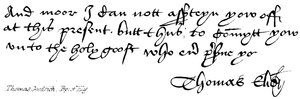 And moor I can nott assteyn yow off
at this present. butt thus to comytt yow
unto the holy goost who ever pserve yo
Thomas Elioy
Thomas Goodrich, Bp. of Ely